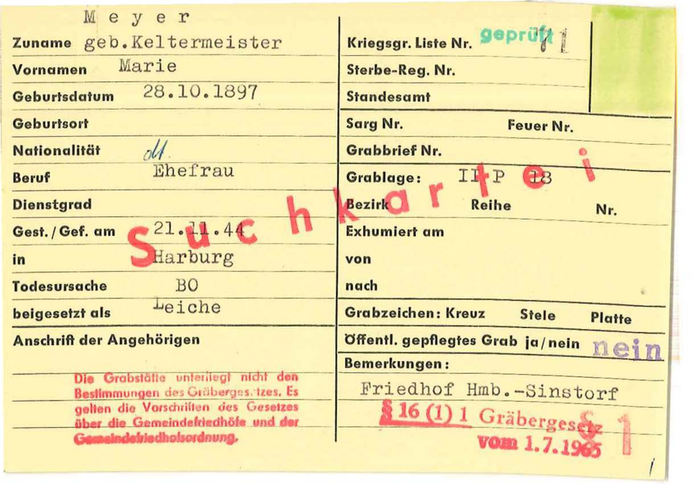 Meyer
Zuname geb.Keltermeister
Vornamen Marie
Geburtsdatum 28.10.1897
Geburtsort
Nationalität dt.
Beruf Ehefrau
Dienstgrad
Gest./Gef. am 21.11.44
in Harburg
Todesursache BO
beigesetzt als Leiche
Anschrift der Angehörigen
Die Grabstätte unterliegt nicht den
Bestimmungen des Gräbergesetzes. Es
gelten die Vorschriften des Gesetzes
über die Gemeindefriedhöfe und der
Gemeindefriedhofsordnung.
Suchkartei
Kriegsgr. Liste Nr. 71
geprüft
Sterbe-Reg. Nr.
Standesamt
Sarg Nr. Feuer Nr.
Grabbrief Nr.
Grablage: II P 18
Bezirk Reihe Nr.
Exhumiert am
von
nach
Grabzeichen: Kreuz Stele Platte
Öffentl. gepflegtes Grab ja/nein nein
Bemerkungen:
Friedhof Hmb.-Sinstorf
§ 16 (1) 1 Gräbergesetz
vom 1.7.1965
§ 1